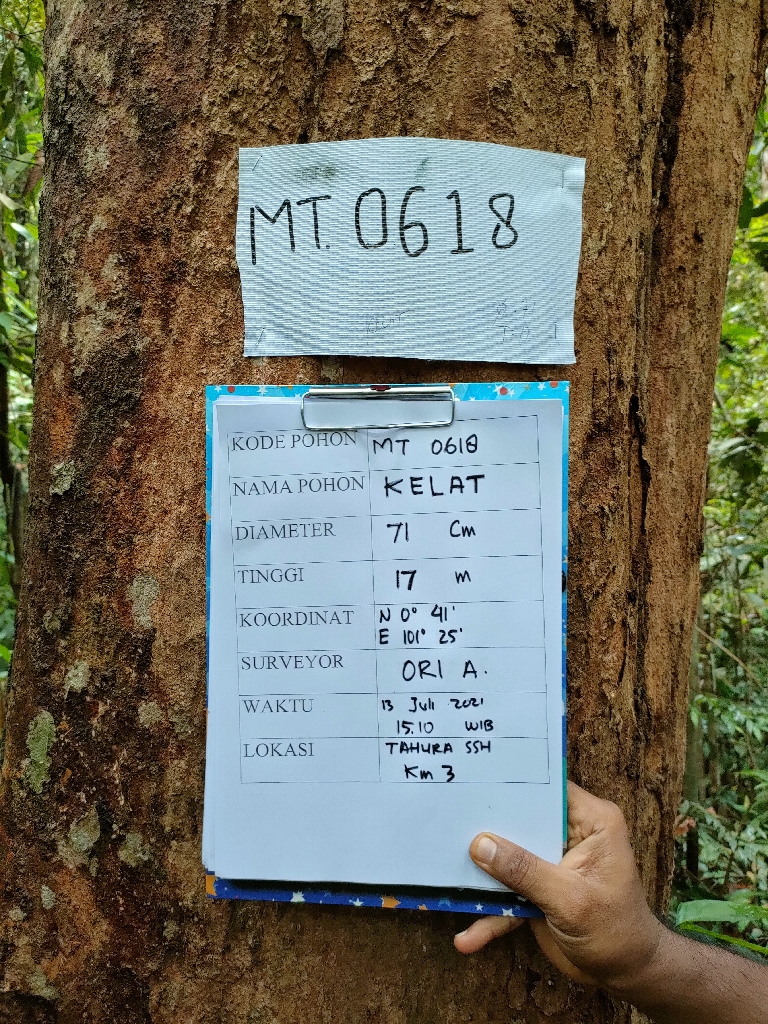 MT. 0618
KELAT
KODE POHON MT 0618
NAMA POHON KELAT
DIAMETER 71 Cm
TINGGI 17 m
KOORDINAT N 0° 41'
E 101° 25'
SURVEYOR ORI A.
WAKTU 13 Juli 2021
15.10 WIB
LOKASI TAHURA SSH
Km 3